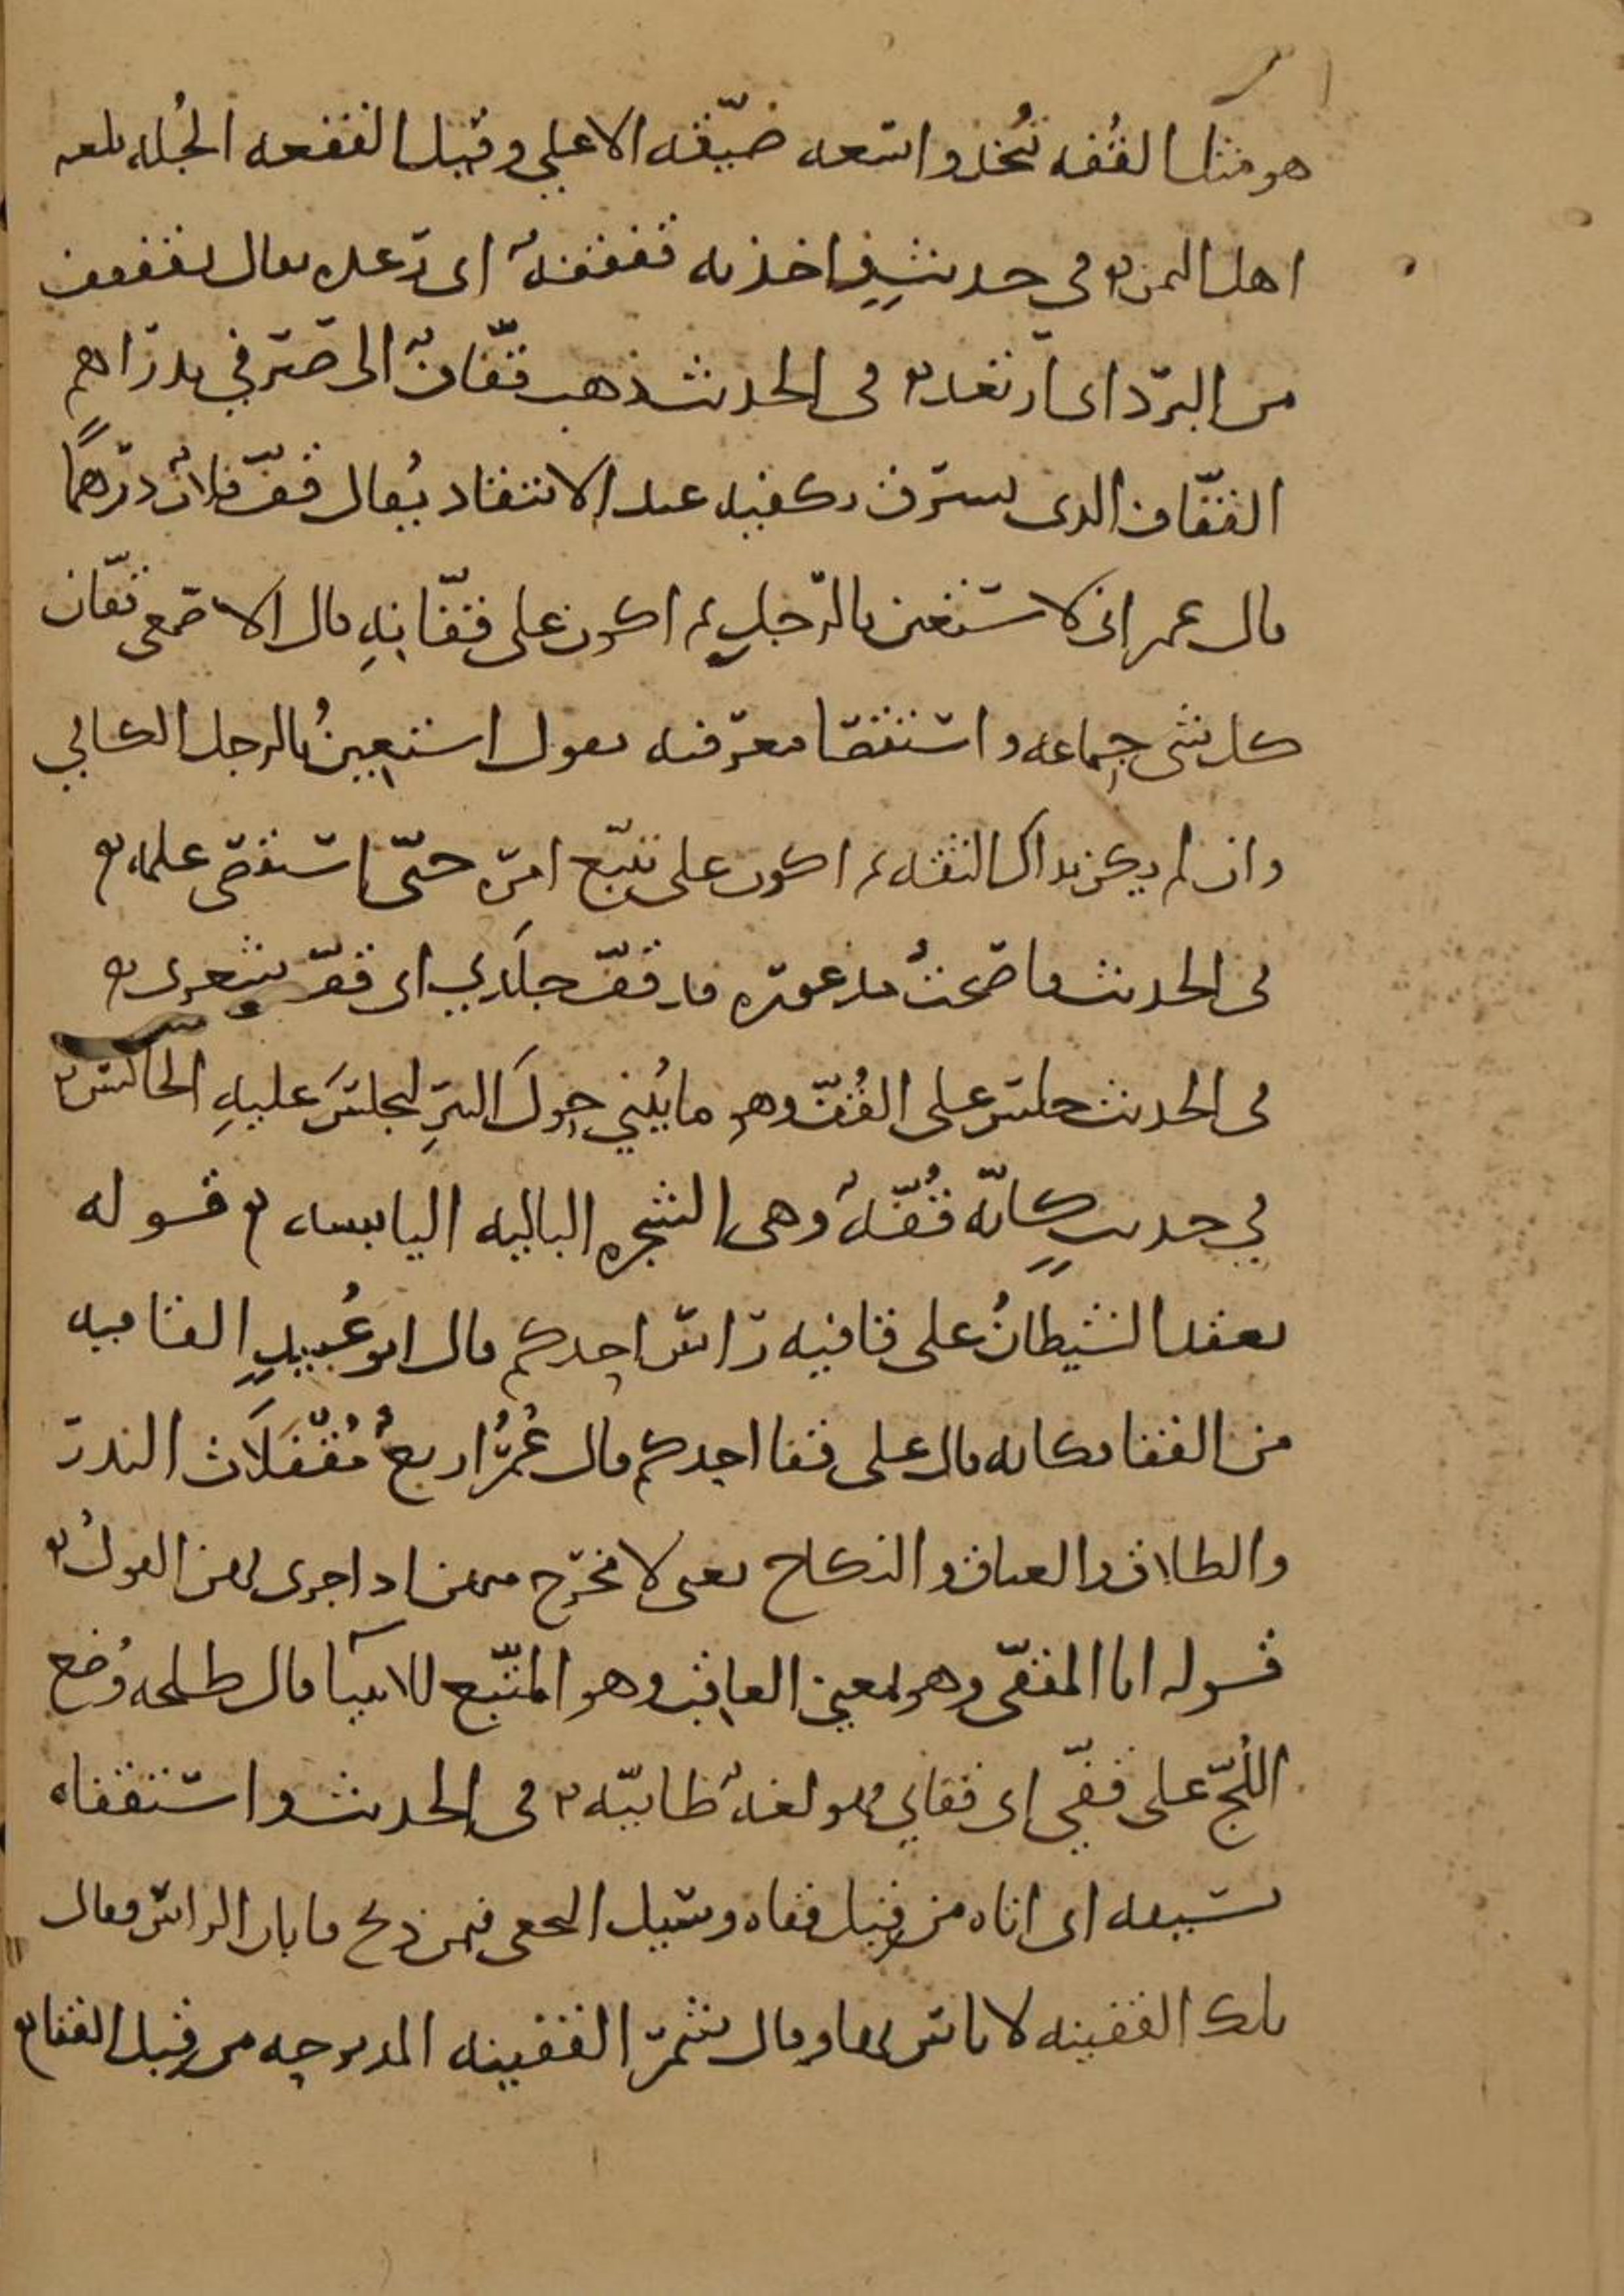 هو مثل القُفه تُتخذ واسعه ضيّقه الاعلى وقيل القفعه الجُله بلغه
اهل اليمن في حديثٍ فاخذته قفقفةٌ اى رعده يقال تقفقف
من البرد اى ارتعد في الحديث ذهب قفّافٌ الى صيرفي بدراهم
القفّاف الذى يسرق بكفيه عند الانتقاد يُقال قفّ فلانٌ درهمًا
قال عمر انى لاستعين بالرّجلِ ثم اكون على قفّانِهِ قال الاصمعى قفّان
كل شى جماعه واستقصا معرفته يقول استعينُ بالرجل الكافي
وان لم يكن بذاك الثقه ثم اكون على تتبّع امره حتّى استقصى علمه
فى الحديث فاصبحتُ مذعوره قد قفّ جلدي اى قفّ شعرى
فى الحديث جلس على القُفّ وهو ما يُبني حول البئرِ ليجلسَ عليهِ الجالس
في حديثٍ كانّه قُفّهٌ وهى الشجره الباليه اليابسه قوله
يعقد الشيطانُ على قافيه راس احدكم قال ابو عُبيدٍ القافيه
من القفا فكانه قال على قفا احدكم قال عُمرُ اربعٌ مُقفَلَات النذر
والطلاق والعتاق والنكاح يعنى لا مخرج منهن اذا جرى بهن القولُ
قوله انا المقفّى وهو بمعني العاقب وهو المتّبع للانبيآ قال طلحه وُضع
اللُجّ على قفيّ اى قفاي وهو لغهٌ طائيّه في الحديث واستقفاه
بسيفه اى اتاه من قِبل قفاه وسيل النخعى فيمن ذبح فابان الراس فقال
تلك القفينه لا باس بها وقال شمر القفينه المذبوحه من قِبل القفا